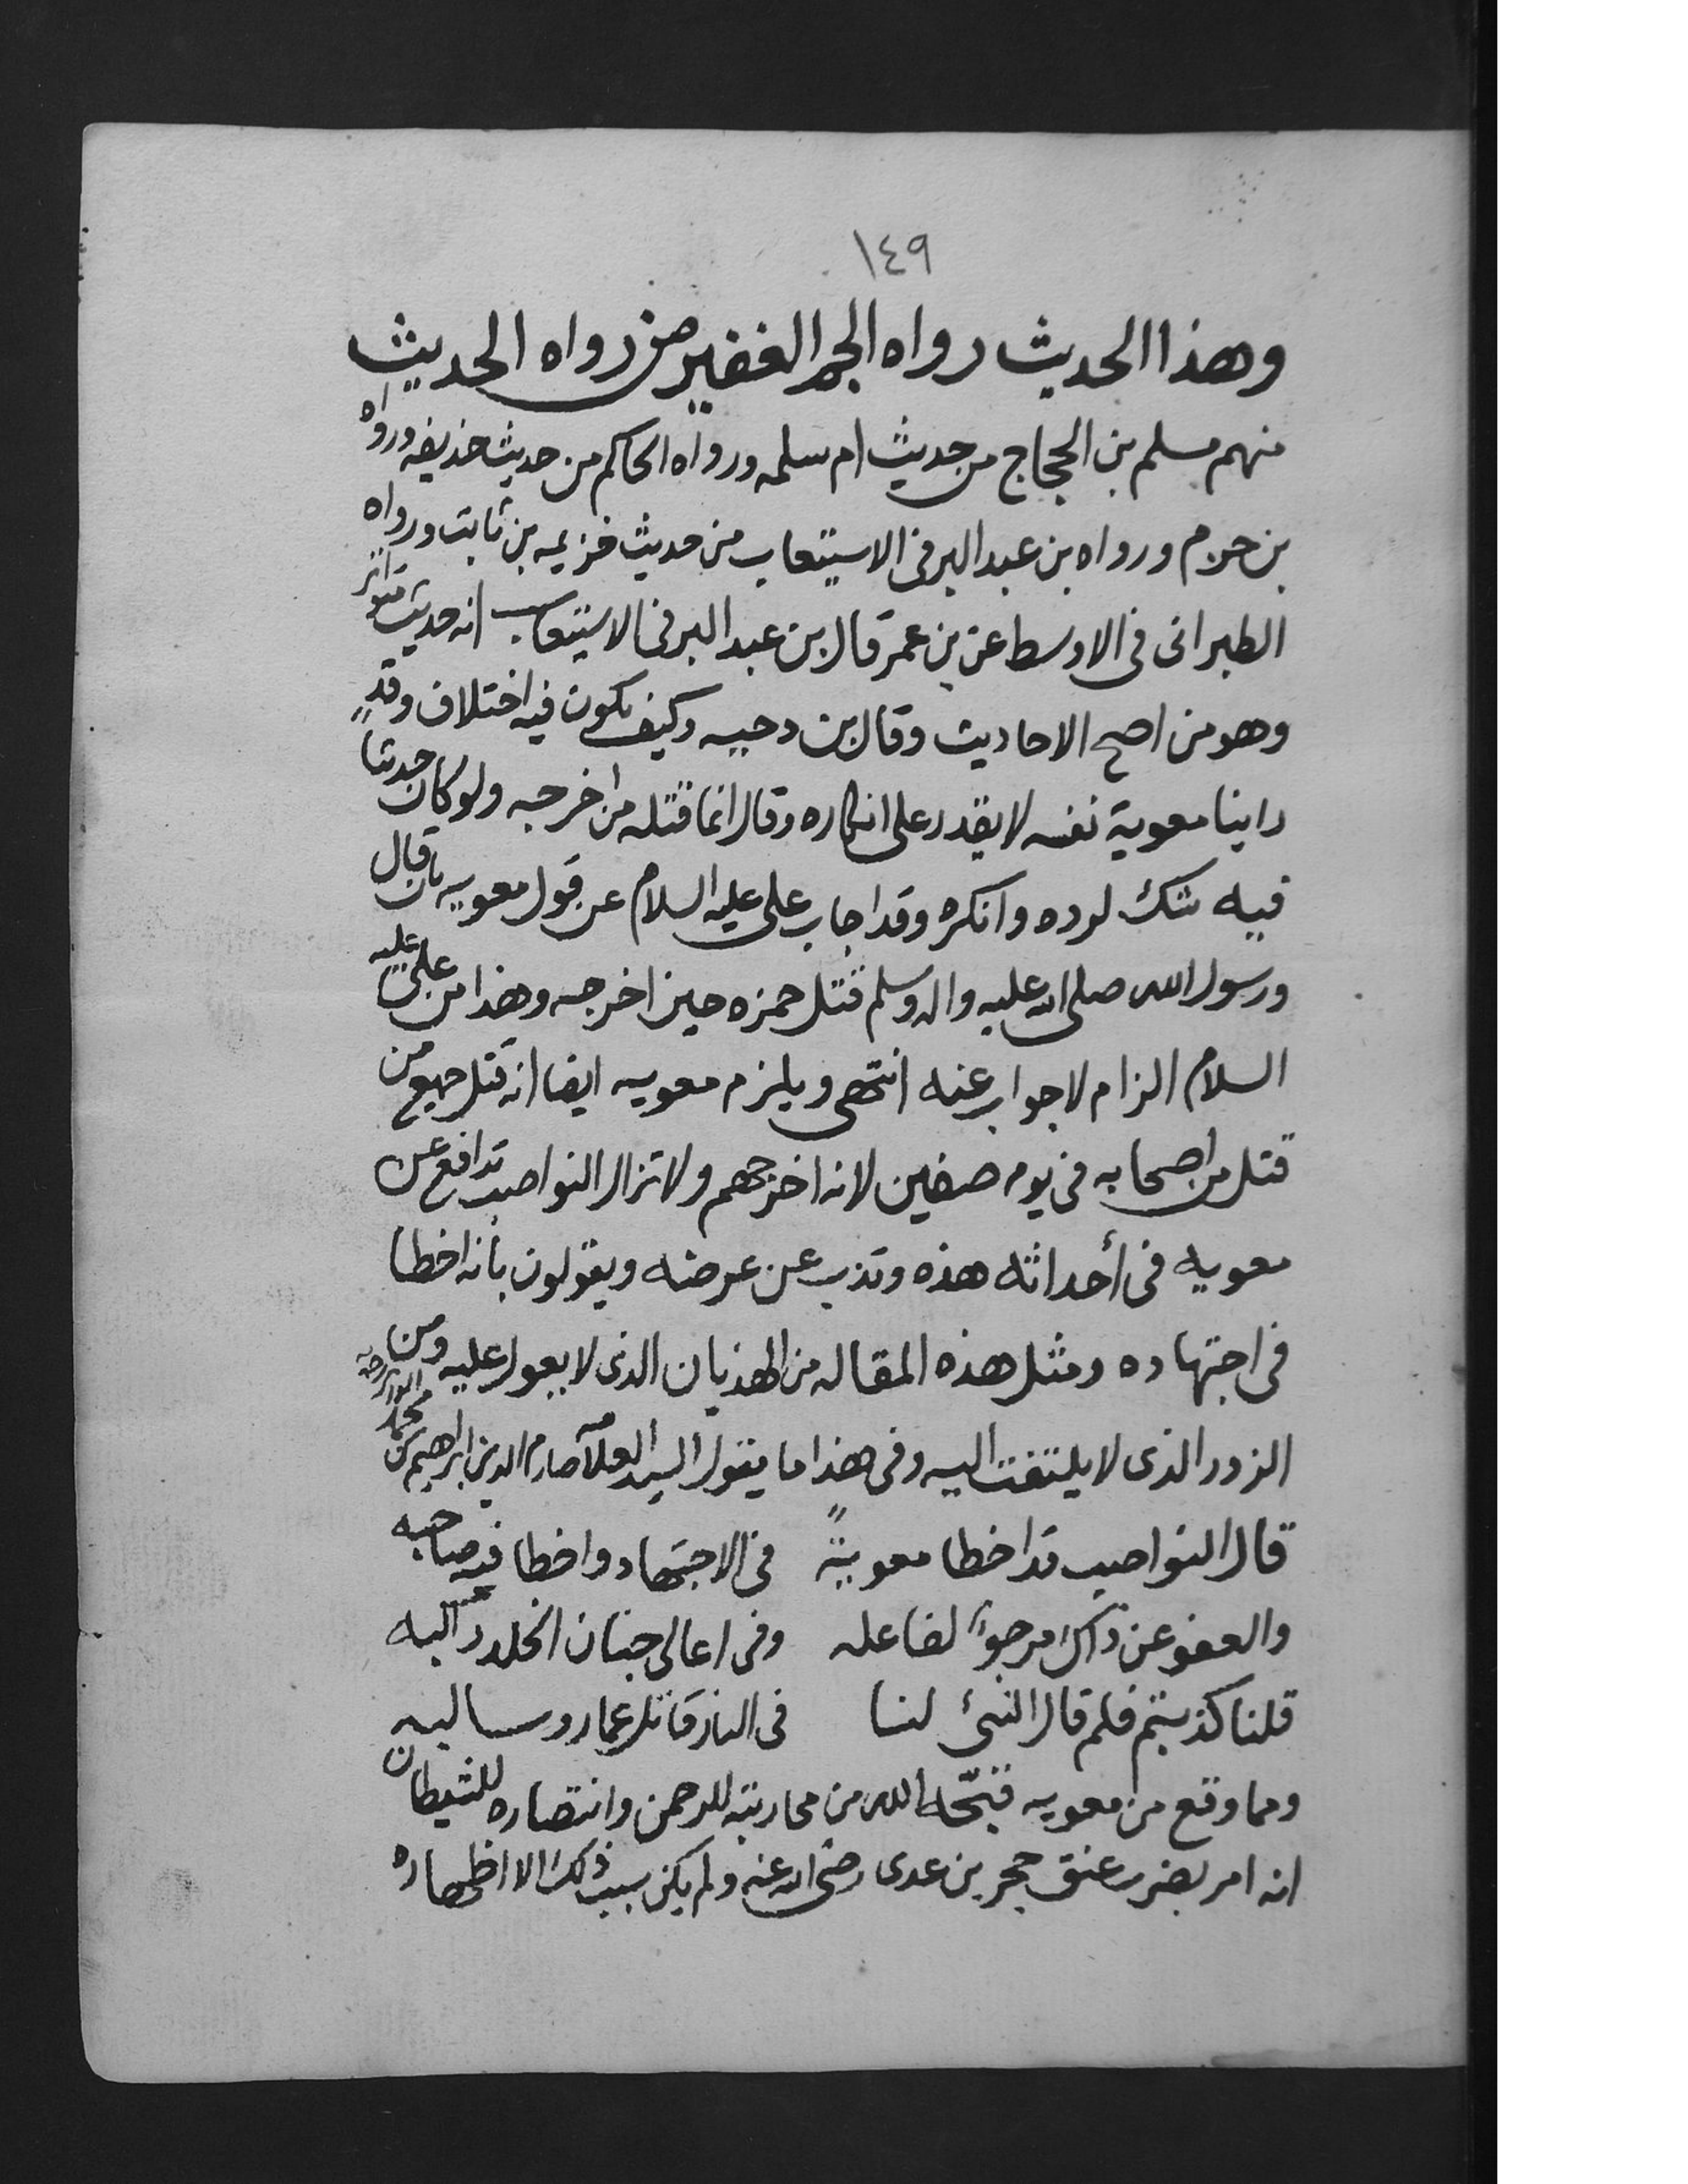 ١٤٩
وهذا الحديث رواه الجم الغفير من رواه الحديث
منهم مسلم بن الحجاج من حديث ام سلمه ورواه الحاكم من حديث حذيفه ورواه
بن حزم ورواه بن عبد البر فى الاستيعاب من حديث خزيمه بن ثابت ورواه
الطبرانى فى الاوسط عن بن عمر قال بن عبد البر فى الاستيعاب انه حديث متواتر
وهو من اصح الاحاديث وقال بن دحيه وكيف يكون فيه اختلاف وقد
راينا معوية نفسه لا يقدر على انكاره وقال انما قتله من اخرجه ولو كان حديثا
فيه شك لرده وانكره وقد اجاب على عليه السلام عن قول معويه بان قال
ورسول الله صلى الله عليه واله وسلم قتل حمزه حين اخرجه وهذا من على عليه
السلام الزام لا جواب عنه انتهى ويلزم معويه ايضا انه قتل جميع من
قتل من اصحابه فى يوم صفين لانه اخرجهم ولا تزال النواصب تدافع عن
معويه فى أحداثه هذه وتذب عن عرضه ويقولون بأنه اخطا
فى اجتهاده ومثل هذه المقاله من الهذيان الذى لا يعول عليه ومن
الزور الذى لا يلتفت اليه وفى هذا ما يقول السيد العلآمه صارم الدين ابراهيم بن محمد الوزير رحمه
قال النواصب قد اخطا معويةً فى الاجتهاد واخطا فيه صاحبه
والعفو عن ذاك مرجوٌ لفاعله وفى اعالى جنان الخلد راكبه
قلنا كذبتم فلم قال النبئ لنا فى النار قاتل عمار وسالبه
ومما وقع من معويه قبّحه الله من محاربته للرحمن وانتصاره للشيطان
انه امر بضرب عنق حجر بن عدى رضى الله عنه ولم يكن سبب ذلك الا اظهاره